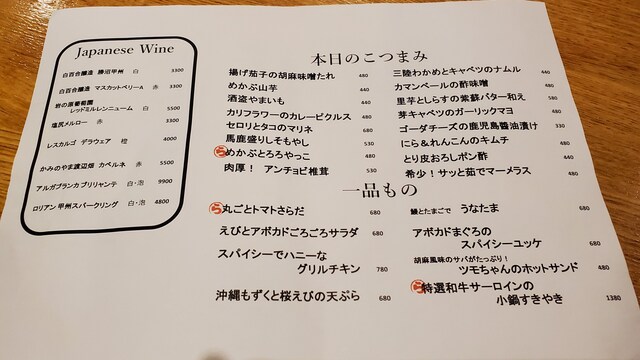 Japanese Wine
白百合醸造 勝沼甲州 白 3300
白百合醸造 マスカットベリーA 赤 3300
岩の原葡萄園
レッドミルレンニューム 白 5500
塩尻メルロー 赤 3300
レスカルゴ デラウェア 橙 4000
かみのやま渡辺畑 カベルネ 赤 5500
アルガブランカブリリャンテ 白・泡 9900
ロリアン 甲州スパークリング 白・泡 4800
本日のこつまみ
揚げ茄子の胡麻味噌たれ 480
めかぶ山芋 440
酒盗やまいも 440
カリフラワーのカレーピクルス 480
セロリとタコのマリネ 680
馬鹿盛りしそもやし 530
ら めかぶとろろやっこ 480
肉厚! アンチョビ椎茸 530
三陸わかめとキャベツのナムル 440
カマンベールの酢味噌 480
里芋としらすの紫蘇バター和え 580
芽キャベツのガーリックマヨ 480
ゴーダチーズの鹿児島醤油漬け 330
にら&れんこんのキムチ 480
とり皮おろしポン酢 440
希少!サッと茹でマーメラス 480
一品もの
ら 丸ごとトマトさらだ 680
えびとアボカドごろごろサラダ 680
スパイシーでハニーな
グリルチキン 780
沖縄もずくと桜えびの天ぷら 680
鰻とたまごで うなたま 680
アボカドまぐろの
スパイシーユッケ 680
胡麻風味のサバがたっぷり!
ツモちゃんのホットサンド 480
ら 特選和牛サーロインの
小鍋すきやき 1380